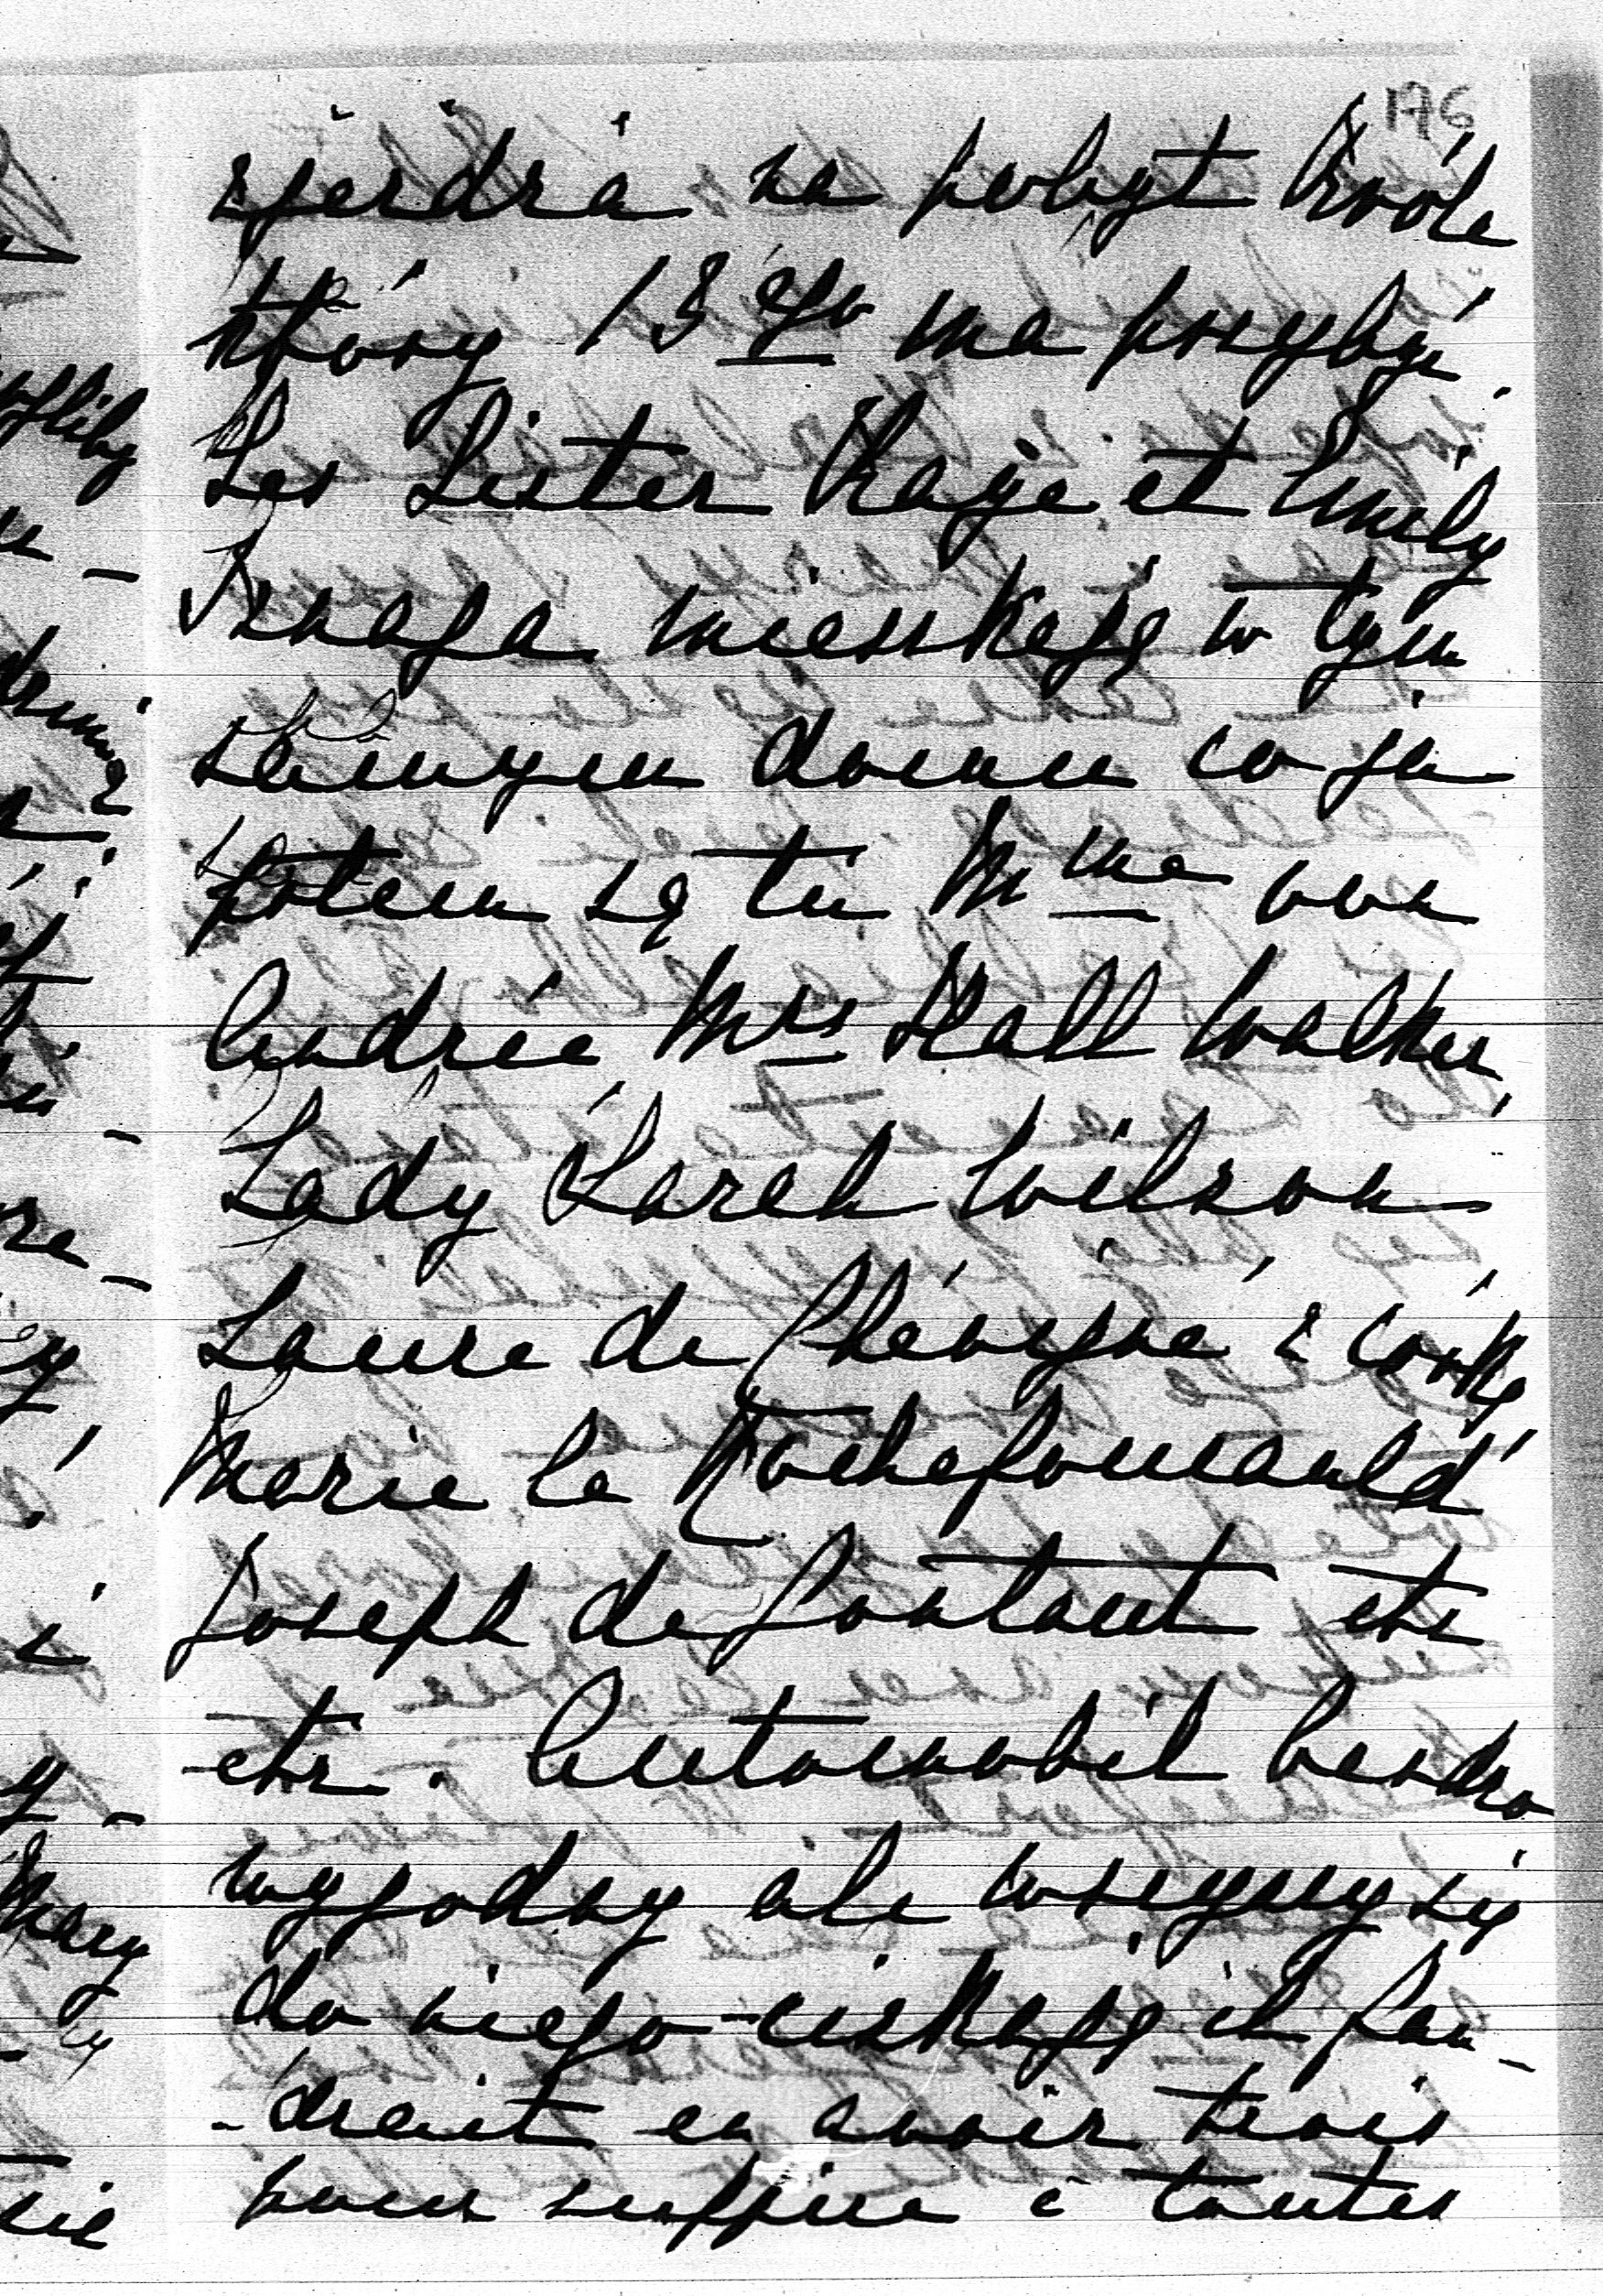 176
zjerdza na pobyt Króla
który 13go ma przybyć.
Les Lister Kaye et Emily
Yznaga mieszkają w tym
samym domu co ja
potem są tu Mme von
André, Mrs Hall Walker,
Lady Sarah Wilson,
Laure de Chévigné z córką,
Marie la Rochefoucauld
Joseph de Gontaut etc
etc. Automobil bardzo
wygodny ale wszyscy się
do niego ciskają il fau-
-drait en avoir trois
pour suffire à toutes